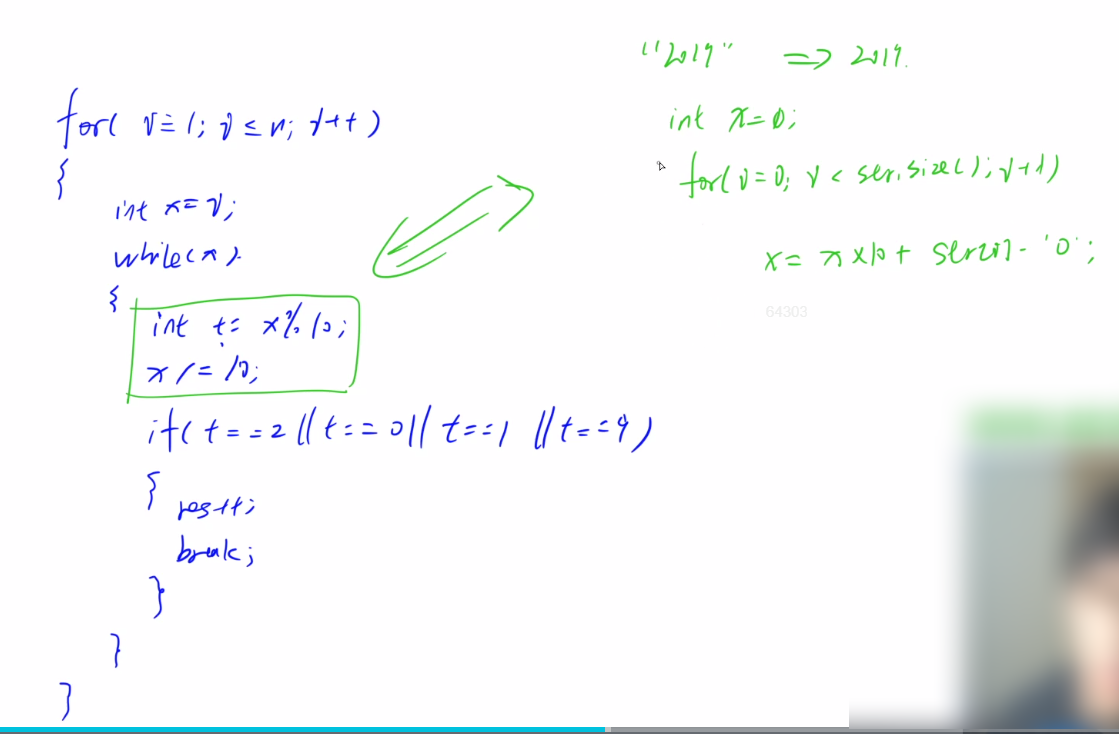 for( i=1; i≤n; i++)
{
int x=i;
while(x)
{
int t= x%10;
x/=10;
if( t==2 || t==0 || t==1 || t==9)
{ res++;
break;
}
}
}
"2019" => 2019.
int x=0;
for(i=0; i< str.size(); i++)
x= x×10+ str[i]-'0';
64303